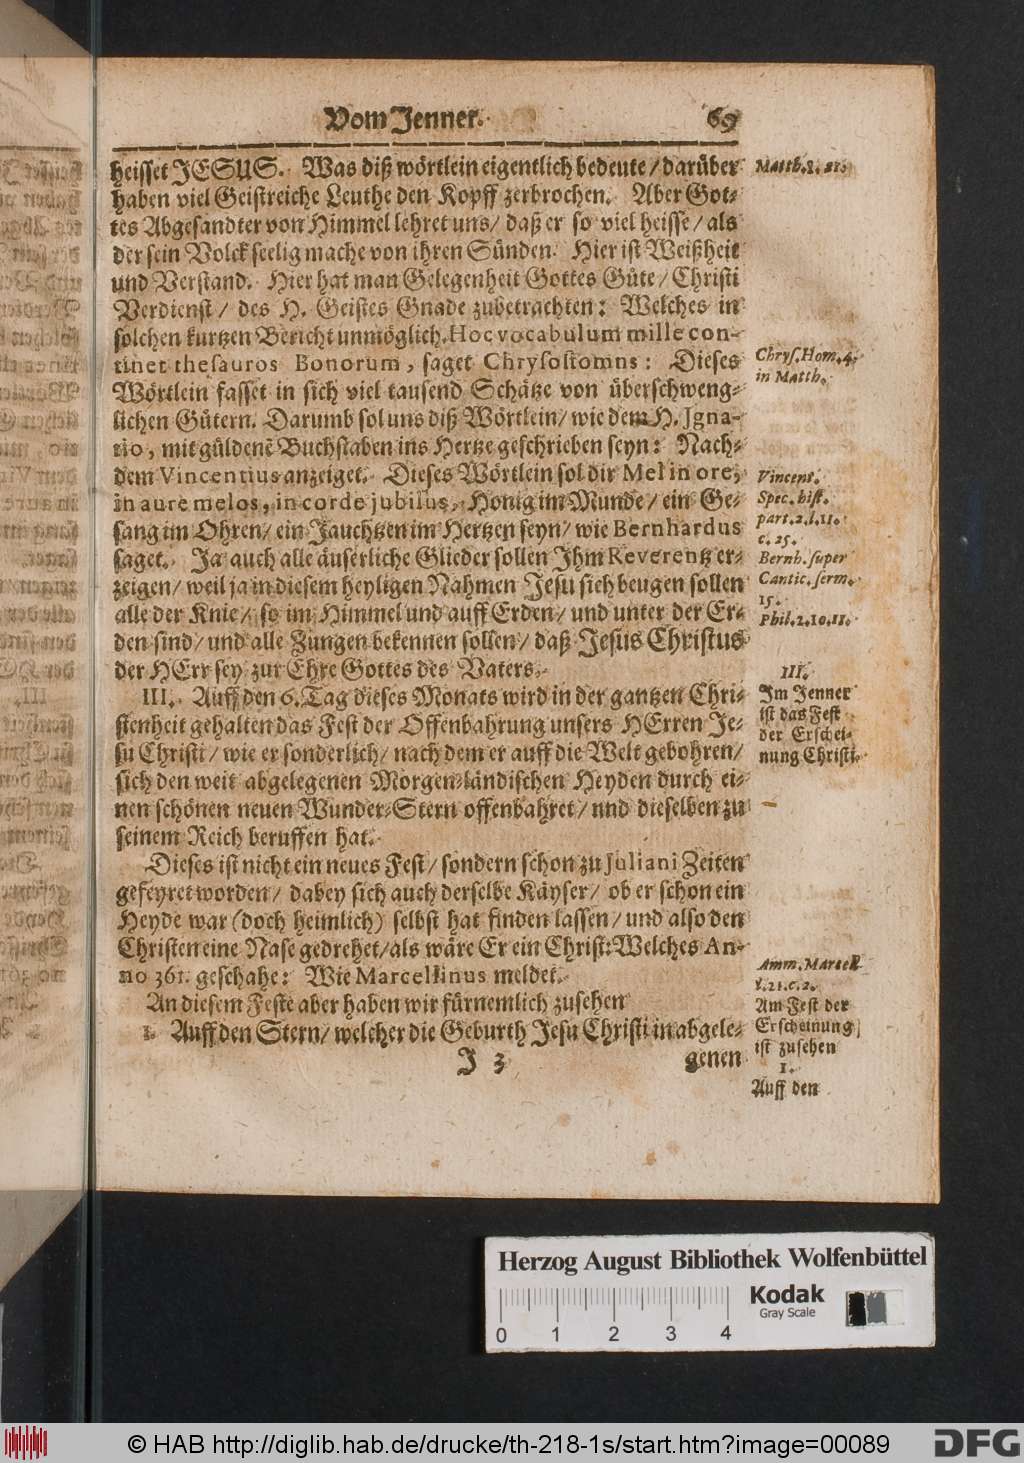 Vom Jenner. 69
heisset JESUS. Was diß wörtlein eigentlich bedeute / darüber
haben viel Geistreiche Leuthe den Kopff zerbrochen. Aber Got-
tes Abgesandter von Himmel lehret uns / daß er so viel heisse / als
der sein Volck seelig mache von ihren Sünden. Hier ist Weißheit
und Verstand. Hier hat man Gelegenheit Gottes Güte / Christi
Verdienst / des H. Geistes Gnade zubetrachten: Welches in
solchen kurtzen Bericht unmöglich. Hoc vocabulum mille con-
tinet thesauros Bonorum, saget Chrysostomns: Dieses
Wörtlein fasset in sich viel tausend Schätze von überschweng-
lichen Gütern. Darumb sol uns diß Wörtlein / wie dem H. Jgna-
tio, mit güldenē Buchstaben ins Hertze geschrieben seyn: Nach-
dem Vincentius anzeiget. Dieses Wörtlein sol dir Mel in ore,
in aure melos, in corde jubilus, Honig im Munde / ein Ge-
sang im Ohren / ein Jauchtzen im Hertzen seyn / wie Bernhardus
saget. Ja auch alle äuserliche Glieder sollen Jhm Reverentz er-
zeigen / weil ja in diesem heyligen Nahmen Jesu sich beugen sollen
alle der Knie / so im Himmel und auff Erden / und unter der Er-
den sind / und alle Zungen bekennen sollen / daß Jesus Christus
der HErr sey zur Ehre Gottes des Vaters.
III. Auff den 6. Tag dieses Monats wird in der gantzen Chri-
stenheit gehalten das Fest der Offenbahrung unsers HErren Je-
su Christi / wie er sonderlich / nach dem er auff die Welt gebohren /
sich den weit abgelegenen Morgen-ländischen Heyden durch ei-
nen schönen neuen Wunder-Stern offenbahret / und dieselben zu
seinem Reich beruffen hat.
Dieses ist nicht ein neues Fest / sondern schon zu Juliani Zeiten
gefeyret worden / dabey sich auch derselbe Käyser / ob er schon ein
Heyde war (doch heimlich) selbst hat finden lassen / und also den
Christen eine Nase gedrehet / als wäre Er ein Christ: Welches An-
no 361. geschahe: Wie Marcellinus meldet.
An diesem Feste aber haben wir fürnemlich zusehen
1. Auff den Stern / welcher die Geburth Jesu Christi in abgele-
J 3 genen
Matth. 1. 21.
Chrys. Hom. 4.
in Matth.
Vincent.
Spec. hist.
part. 2. l. 11.
c. 25.
Bernh. super
Cantic. serm.
15.
Phil. 2. 10. 11.
III.
Im Jenner
ist das Fest
der Erschei-
nung Christi.
Amm. Marcell.
l. 21. c. 2.
Am Fest der
Erscheinung
ist zusehen
1.
Auff den
Herzog August Bibliothek Wolfenbüttel
Kodak
Gray Scale
0 1 2 3 4
© HAB http://diglib.hab.de/drucke/th-218-1s/start.htm?image=00089
DFG